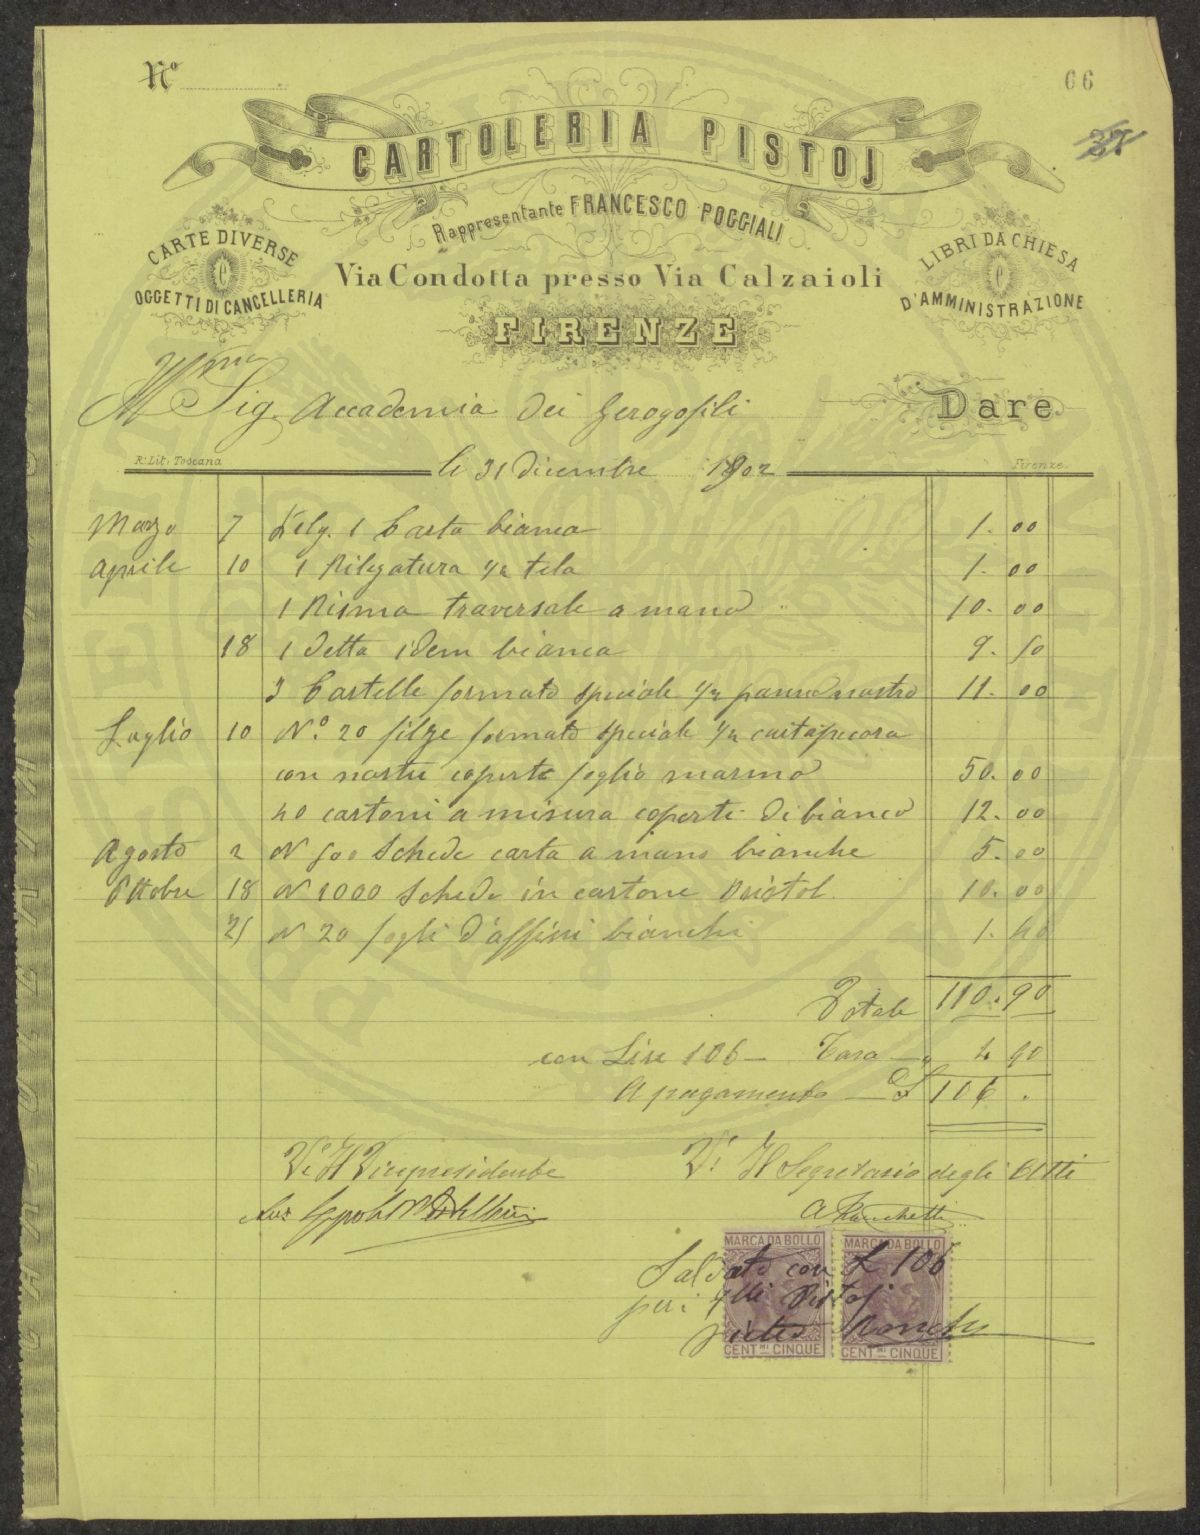 Nº
66
CARTOLERIA PISTOJ
Rappresentante FRANCESCO POGGIALI
CARTE DIVERSE
C
OGGETTI DI CANCELLERIA
LIBRI DA CHIESA
C
D'AMMINISTRAZIONE
Via Condotta presso Via Calzaioli
FIRENZE
Sig. Accademia dei Gerogofili Dare
R. Lit. Toscana
Firenze.
li 31 Dicembre 1902
Marzo 7 Kilg. 1 Carta bianca 1. 00
Aprile 10 1 Rilegatura ½ tela 1. 00
1 Risma traversale a mano " 10. 00
18 1 Detta idem bianca 9. 50
3 Cartelle formato speciale ½ panno nastro 11. 00
Luglio 10 Nº 20 filze formato speciale ½ cartapecora
con nastri coperte foglio marmo 50. 00
40 cartoni a misura coperti di bianco 12. 00
Agosto 2 N 500 Schede carta a mano bianche 5. 00
Ottobre 18 N 1000 Schede in cartone Bristol. 10. 00
21 N 20 fogli d'affissi bianchi 1. 40
Totale 110. 90
con Lire 106 — Tara — " 4 90
A pagamento — £ 106 .
Vº Il Vicepresidente
Vº Il Segretario degli Atti
MARCA DA BOLLO
MARCA DA BOLLO
Saldato con £ 106
per i flli Pistoj
CENT.MI CINQUE
CENT.MI CINQUE